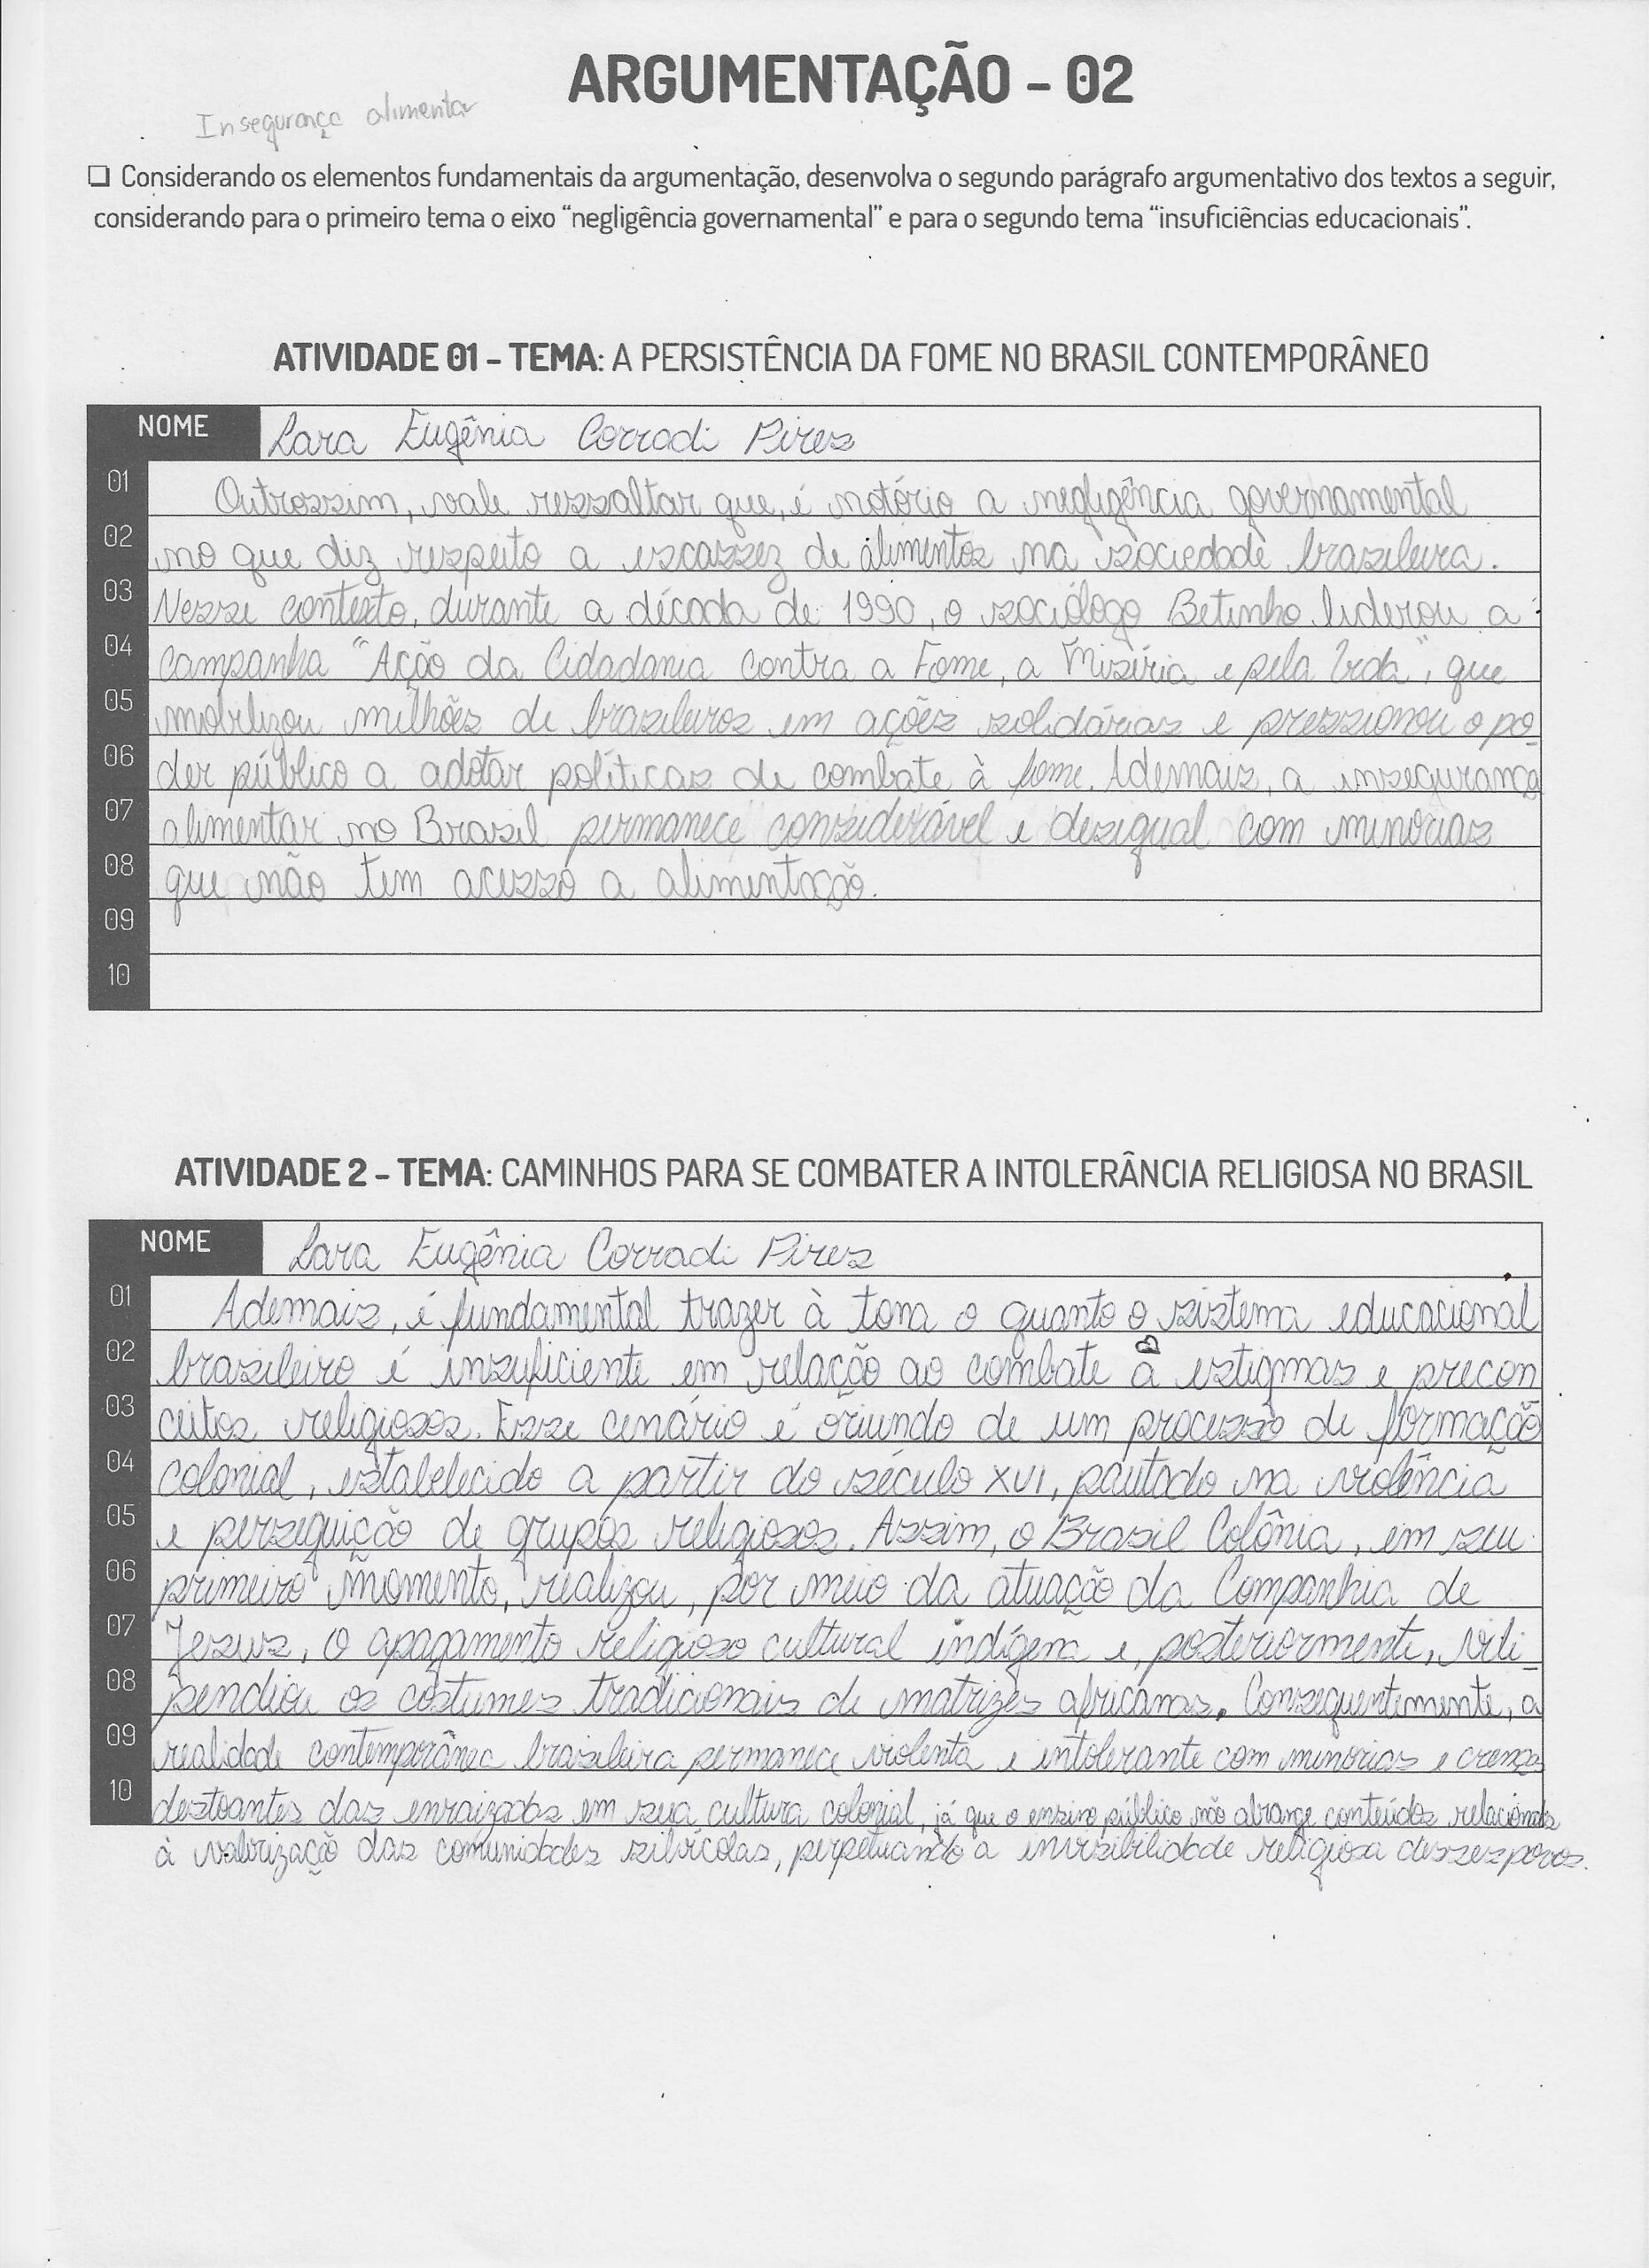 ARGUMENTAÇÃO - 02
Insegurança alimentar
❑ Considerando os elementos fundamentais da argumentação, desenvolva o segundo parágrafo argumentativo dos textos a seguir,
considerando para o primeiro tema o eixo “negligência governamental” e para o segundo tema “insuficiências educacionais”.
ATIVIDADE 01 – TEMA: A PERSISTÊNCIA DA FOME NO BRASIL CONTEMPORÂNEO
NOME Lara Eugênia Corradi Pires
01 Outrossim, vale ressaltar que, é notório a negligência governamental
02 no que diz respeito a escassez de alimentos na sociedade brasileira.
03 Nesse contexto, durante a década de 1990, o sociólogo Betinho liderou a
04 campanha "Ação da Cidadania contra a Fome, a Miséria e pela Vida", que
05 mobilizou milhões de brasileiros em ações solidárias e pressionou o po-
06 der público a adotar políticas de combate à fome. Ademais, a insegurança
07 alimentar no Brasil permanece considerável e desigual com minorias
08 que não tem acesso a alimentação.
09
10
ATIVIDADE 2 – TEMA: CAMINHOS PARA SE COMBATER A INTOLERÂNCIA RELIGIOSA NO BRASIL
NOME Lara Eugênia Corradi Pires
01 Ademais, é fundamental trazer à tona o quanto o sistema educacional
02 brasileiro é insuficiente em relação ao combate a estigmas e precon
03 ceitos religiosos. Esse cenário é oriundo de um processo de formação
04 colonial, estabelecido a partir do século XVI, pautado na violência
05 e perseguição de grupos religiosos. Assim, o Brasil Colônia, em seu
06 primeiro momento, realizou, por meio da atuação da Companhia de
07 Jesus, o apagamento religioso cultural indígena e, posteriormente, vili-
08 pendiou os costumes tradicionais de matrizes africanas. Consequentemente, a
09 realidade contemporânea brasileira permanece violenta e intolerante com minorias e crenças
10 destoantes das enraizadas em sua cultura colonial, já que o ensino público não abrange conteúdos relacionados
à valorização das comunidades silvícolas, perpetuando a invisibilidade religiosa desses povos.